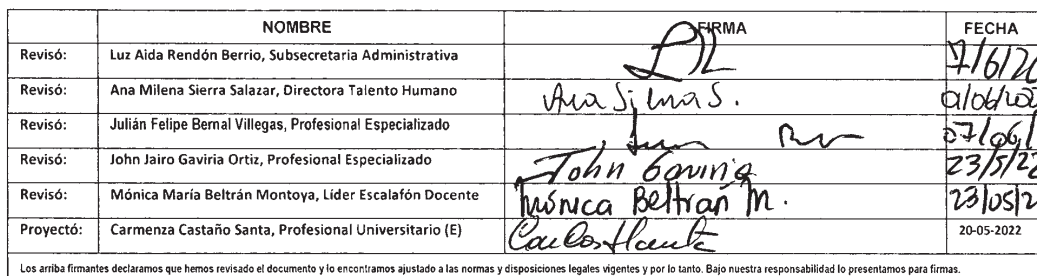 NOMBRE FIRMA FECHA
Revisó: Luz Aida Rendón Berrio, Subsecretaria Administrativa 7/6/20
Revisó: Ana Milena Sierra Salazar, Directora Talento Humano Ana S.
Revisó: Julián Felipe Bernal Villegas, Profesional Especializado 07/06/
Revisó: John Jairo Gaviria Ortiz, Profesional Especializado John Gaviria 23/5/22
Revisó: Mónica María Beltrán Montoya, Líder Escalafón Docente Mónica Beltran M. 23/05/2
Proyectó: Carmenza Castaño Santa, Profesional Universitario (E) 20-05-2022
Los arriba firmantes declaramos que hemos revisado el documento y lo encontramos ajustado a las normas y disposiciones legales vigentes y por lo tanto. Bajo nuestra responsabilidad lo presentamos para firmas.